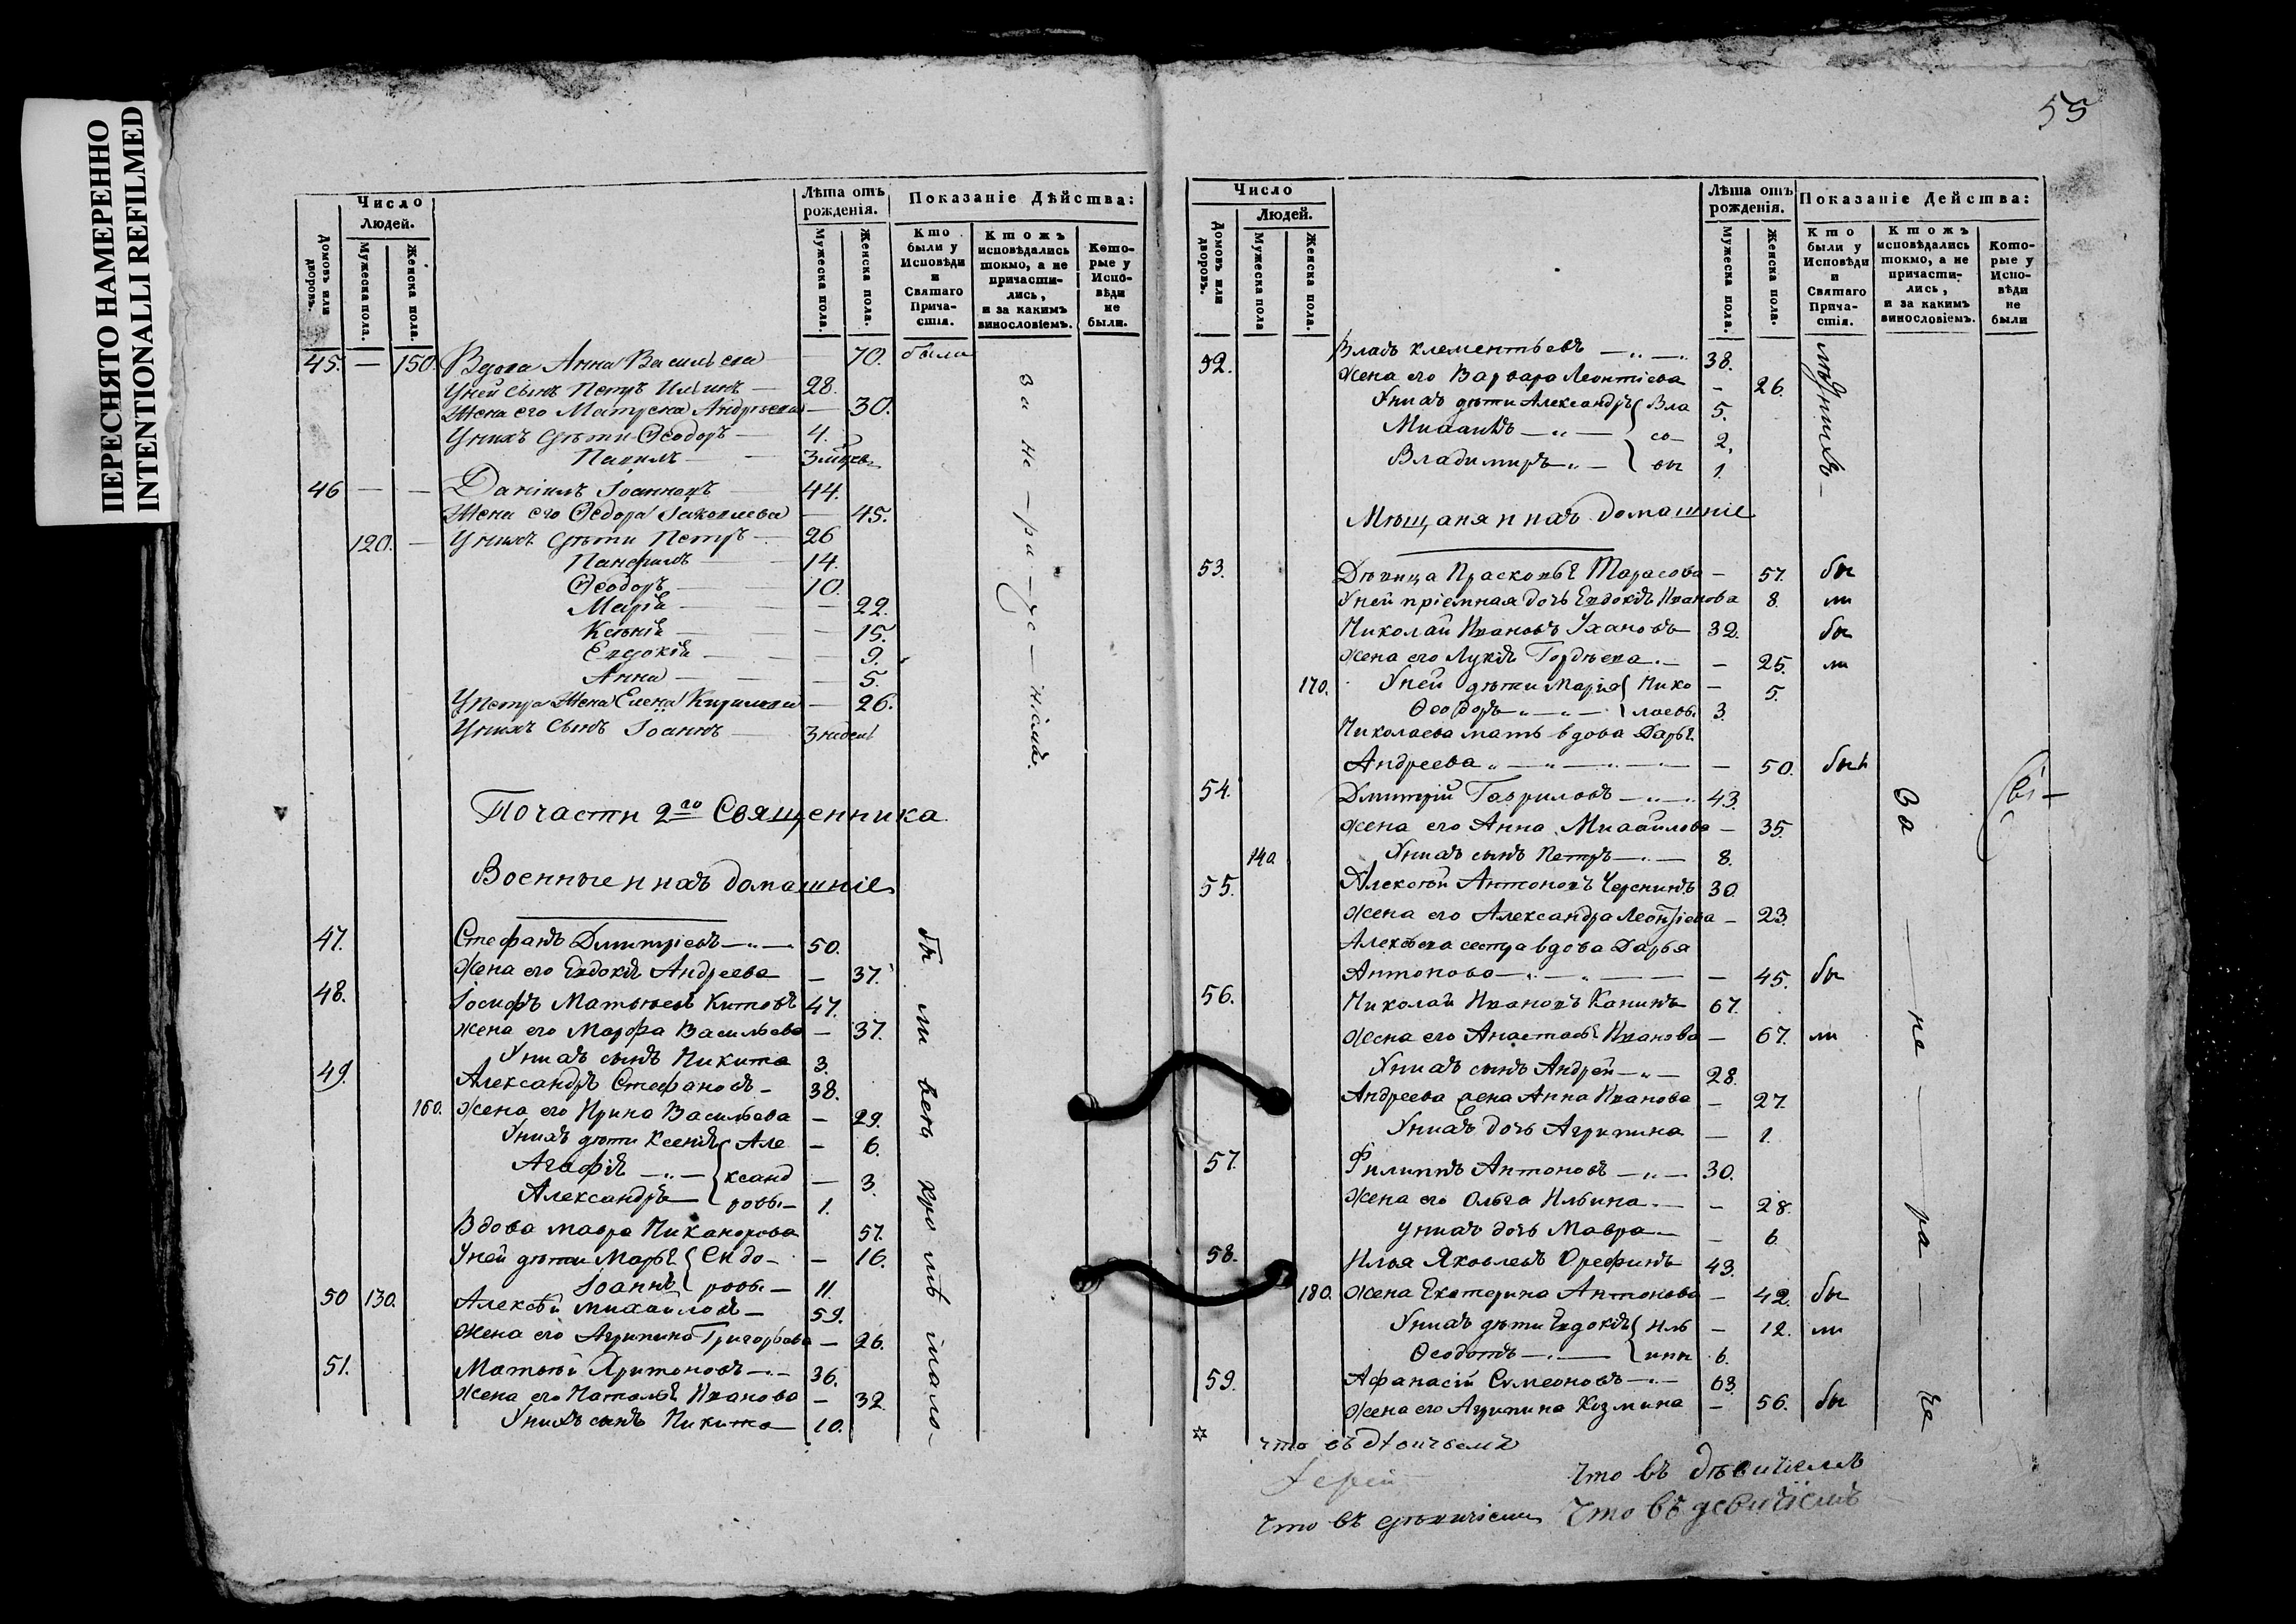 ПЕРЕСНЯТО НАМЕРЕННО
INTENTIONALLI REFILMED
Число
Людей.
Домовъ или дворовъ.
Мужеска пола.
Женска пола.
Лѣта отъ рожденія.
Мужеска пола.
Женска пола.
Показаніе Дѣйства:
Кто были у Исповѣди и Святаго Прича-стія.
Ктожъ исповѣдались токмо, а не причасти-лись, и за какимъ винословіемъ.
Кото-рые у Испо-вѣди не были.
45. — 150. Вдова Анна Васильева — 70. были
У ней сынъ Петръ Ильинъ — 28.
Жена его Матрена Андреева — 30.
У нихъ дѣти Ѳеодоръ — 4.
3
46 — — Даніилъ Іоанновъ 44.
Жена его Ѳедора Іаковлева — 45.
120. — У нихъ дѣти Петръ — 26
Панфилъ 14.
Ѳеодоръ — 10.
Марія — — 22.
Ксенія — — 15.
Евдокія — — 9.
Анна — — 5.
У Петра Жена Елена — 26.
У нихъ сынъ Іоаннъ — 3 недель
за не — ра — че — ніемъ.
По части 2го Священника
Военные и ихъ домашніе
47. Стефанъ Дмитріевъ — 50.
Жена его Евдокія Андреева — 37.
48. Іосифъ Матвѣевъ Китовъ 47.
Жена его Марфа Васильева — 37.
У нихъ сынъ Никита 3.
49. Александръ Стефановъ — 38.
160. Жена его Ирина Васильева — 29.
У нихъ дѣти Ксенія { Але — 6.
Агафія — { ксанд — 3.
Александръ — { ровы — 1.
Вдова Мавра Никанорова 57.
У ней дѣти Марья { Сидо — — 16.
Іоаннъ { ровы — 11.
50 130. Алексѣй Михайловъ — 59.
Жена его Агрипина Григорьева — 26.
51. Матвѣй Харитоновъ — 36.
Жена его Наталья Иванова — 32.
У нихъ сынъ Никита — 10.
бы ли всѣ кро мѣ мало-
55
Число
Людей.
Домовъ или дворовъ.
Мужеска пола
Женска пола.
Лѣта отъ рожденія.
Мужеска пола.
Женска пола.
Показаніе Действа:
Кто были у Исповѣди и Святаго Прича-стія.
Ктожъ исповѣдались токмо, а не причасти-лись, и за какимъ винословіемъ.
Кото-рые у Испо-вѣди не были
52. Власъ Клементьевъ — 38.
Жена его Варвара Леонтіева — 26.
У нихъ дѣти Александръ { Вла 5.
Михаилъ — { со — 2.
Владимиръ — { вы 1.
Мѣщаня и ихъ домашніе
53. Дѣвица Прасковья Тарасова — 57. бы
У ней пріемная дочь Евдокія Иванова 8. ли
Николай Ивановъ Ухановъ 32. бы
Жена его Лукія Гордѣева — — 25. ли
170. У ней дѣти Марія { Нико — 5.
Ѳеодоръ — { лаевы 3.
Николаева мать вдова Дарья
Андреева — — 50. бы
54. Дмитрій Гавриловъ — 43.
Жена его Анна Михайлова — 35.
140. У нихъ сынъ Петръ — 8.
55. Алексѣй Антоновъ 30.
Жена его Александра Леонтіева — 23.
Алексѣева сестра вдова Дарья
Антонова — — 45. бы
56. Николай Ивановъ Канинъ 67.
Жена его Анастасья Иванова — 67. ли
У нихъ сынъ Андрей — 28.
Андреева жена Анна Иванова — 27.
У нихъ дочь Агрипина — 1.
57. Филиппъ Антоновъ — 30.
Жена его Ольга Ильина — — 28.
У нихъ дочь Мавра — — 6.
58. Илья Яковлевъ Орефинъ 43.
180. Жена Екатерина Антонова — 42. бы
У нихъ дѣти Евдокія { Иль — 12. ли
Ѳеодотъ — { ины 6.
59. Афанасій Симеоновъ — 63.
Жена его Агрипина Козмина — 56. бы
за — не — ра — че
что въ
что въ дѣвичіемъ
что въ дѣвичіемъ что въ девичіемъ